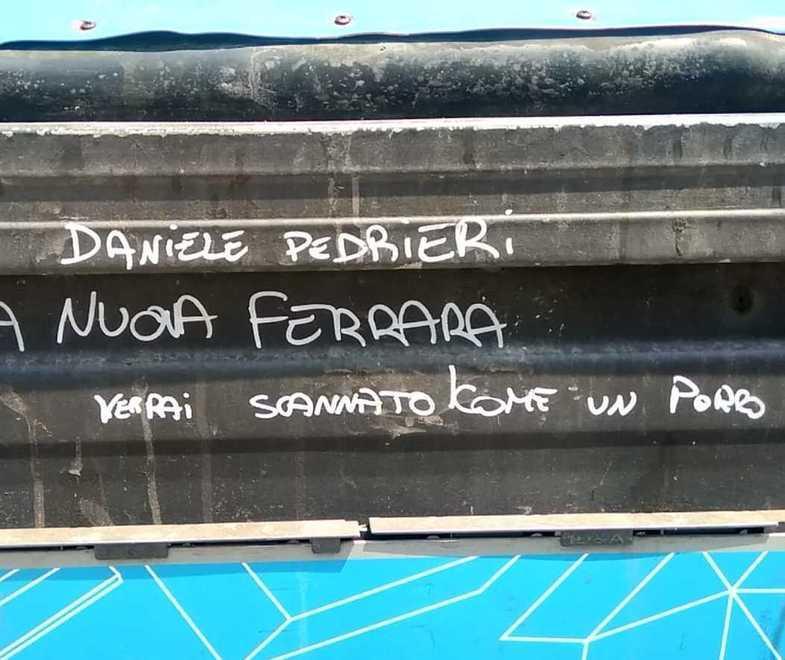 DANIELE PEDRIERI
A NUOVA FERRARA
VERRAI SCANNATO COME UN PORRO